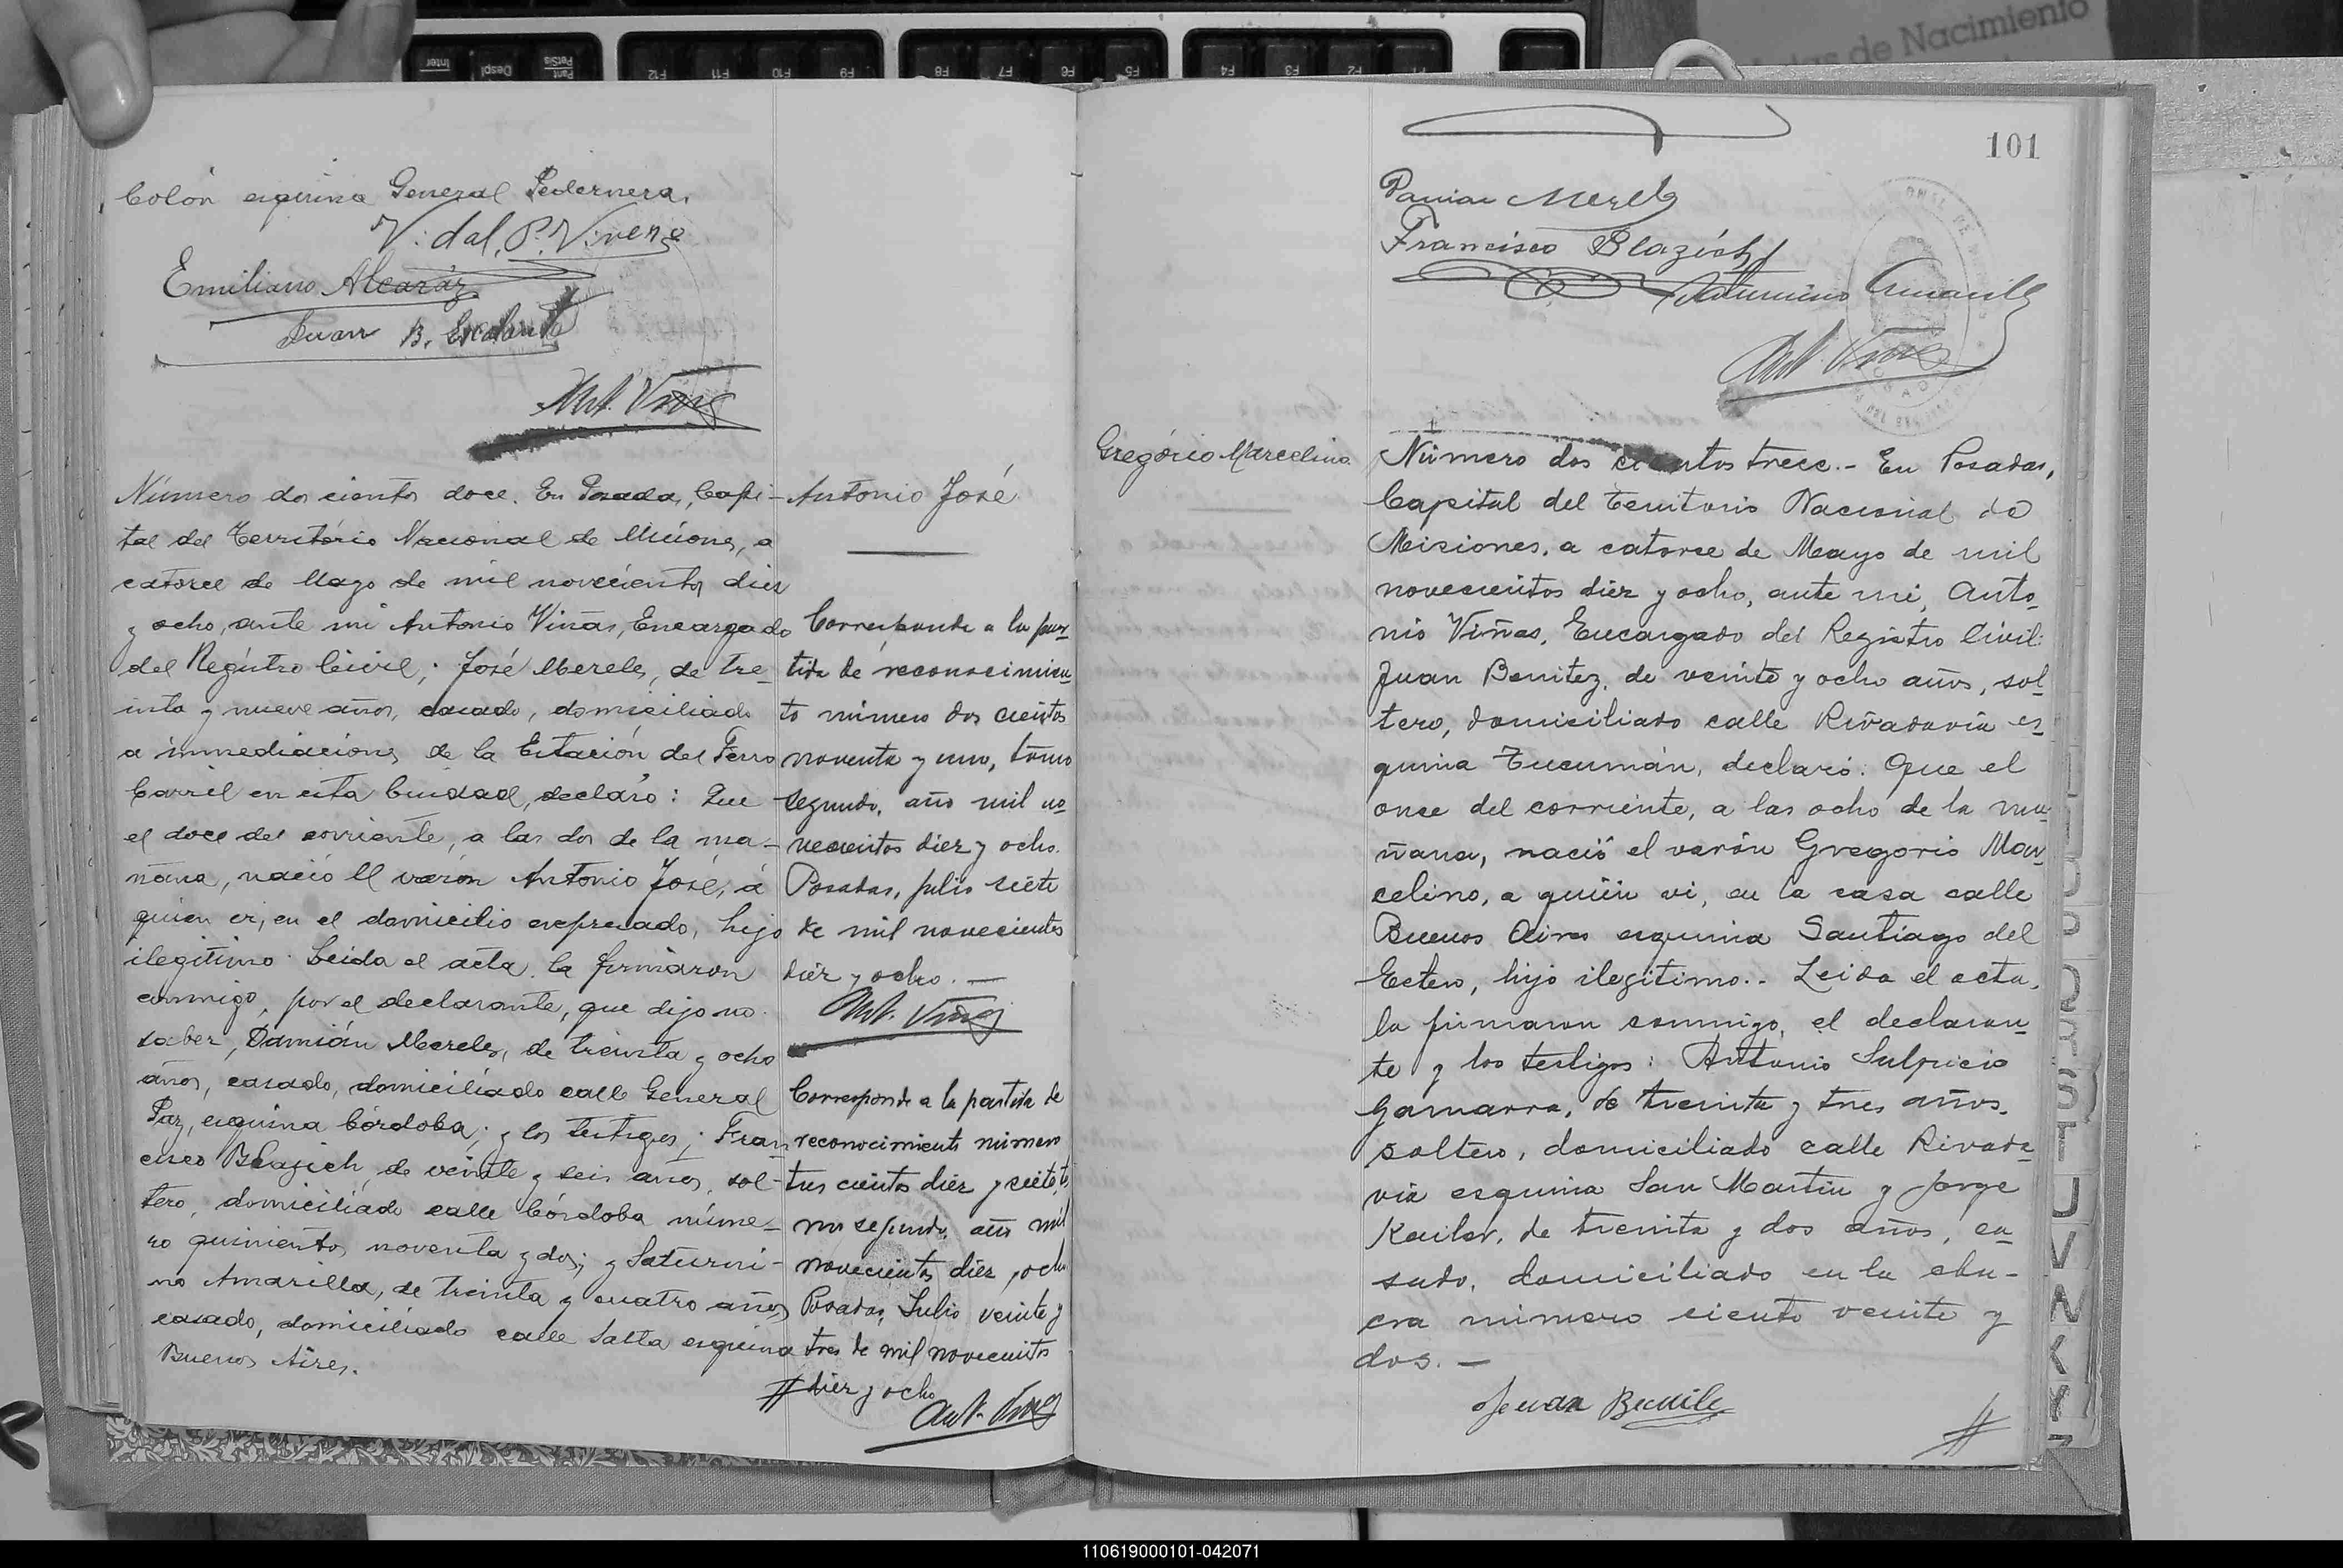 de Nacimiento
Colón esquina General Pedernera.
Vidal P. Vivero
Emiliano Alcaráz
Juan B. Escalante
Ant. Viñas
Número dos cientos doce. En Posadas, Capi-
tal del Território Nacional de Misiones, a
catorce de Mayo de mil novecientos diez
y ocho, ante mi Antonio Viñas, Encargado
del Registro Civil; José Mereles, de tre-
inta y nueve años, casado, domiciliado
a inmediaciones de la Estación del Ferro
Carril en esta Ciudad, declaró: Que
el doce del corriente, a las dos de la ma-
ñana, nació el varón Antonio José, á
quien vi, en el domicilio expresado, hijo
ilegítimo. Leida el acta la firmaron
conmigo, por el declarante, que dijo no
saber, Damián Mereles, de treinta y ocho
años, casado, domiciliado calle General
Paz, esquina Córdoba; y los testigos; Fran
cisco Blazich, de veinte y seis años, sol-
tero, domiciliado calle Córdoba núme-
ro quinientos noventa y dos; y Saturni-
no Amarilla, de treinta y cuatro años
casado, domiciliado calle Salta esquina
Buenos Aires.
Antonio José
Corresponde a la par-
tida de reconocimien-
to número dos cientos
noventa y uno, tomo
segundo, año mil no-
vecientos diez y ocho.
Posadas, julio siete
de mil novecientos
diez y ocho. —
Ant. Viñas
Corresponde a la partida de
reconocimiento número
tres cientos diez y siete, to
mo segundo, año mil
novecientos diez y ocho
Posadas, Julio veinte y
tres de mil novecientos
diez y ocho
Ant. Viñas
101
Damian Mereles
Francisco Blazich
Saturnino Amarilla
Ant. Viñas
Gregório Marcelino
Número dos cientos trece.- En Posadas,
Capital del Territorio Nacional de
Misiones, a catorce de Mayo de mil
novecientos diez y ocho, ante mi, Anto-
nio Viñas, Encargado del Registro Civil:
Juan Benitez, de veinte y ocho años, sol-
tero, domiciliado calle Rivadavia es-
quina Tucumán, declaró: Que el
once del corriente, a las ocho de la ma-
ñana, nació el varón Gregorio Mar-
celino, a quién vi, en la casa calle
Buenos Aires esquina Santiago del
Estero, hijo ilegítimo.- Leida el acta,
la firmaron conmigo, el declaran-
te y los testigos: Antonio Sulpicio
Gamarra, de treinta y tres años,
soltero, domiciliado calle Rivada-
via esquina San Martin y Jorge
de treinta y dos años, ca-
sado, domiciliado en la cha-
cra número ciento veinte y
dos. —
Juan Benite
110619000101-042071